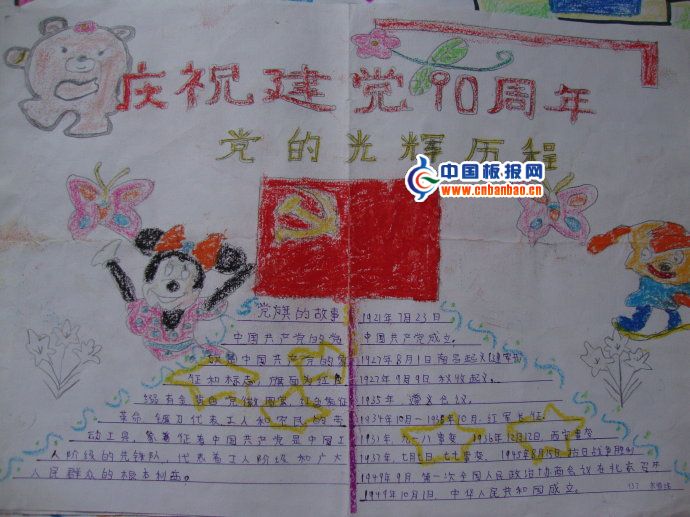 庆祝建党90周年
党的光辉历程
中国板报网
www.cnbanbao.cn
党旗的故事
中国共产党的党
徽和中国共产党的象
征和标志,旗面为红色
缀有金黄色党徽图案,红色象征
革命 镰刀代表工人和农民的劳
动工具,象征着中国共产党是中国工
人阶级的先锋队,代表着工人阶级和广大
人民群众的根本利益。
1921年7月23日
中国共产党成立。
1927年8月1日南昌起义(建军节)
1927年9月9日秋收起义。
1935年 遵义会议
1934年10月—1936年10月,红军长征
1931年,九一八事变,1936年12月12日,西安事变
1937年,七月七日,七七事变,1945年8月15日抗日战争胜利
1949年9月,第一次全国人民政治协商会议在北京召开
1949年10月1日,中华人民共和国成立。